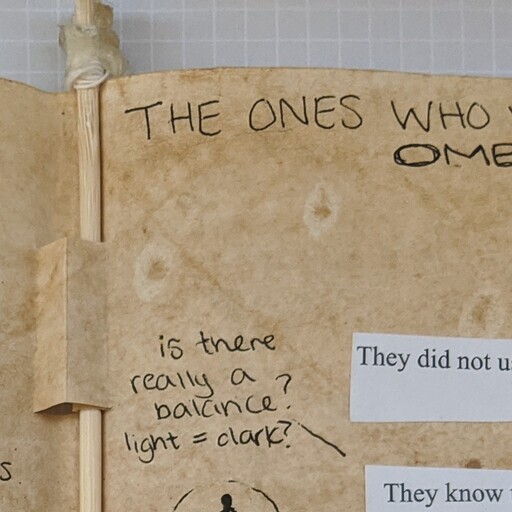 THE ONES WHO
OME
is there
really a
balance?
light = dark?
They did not u
s.
They know